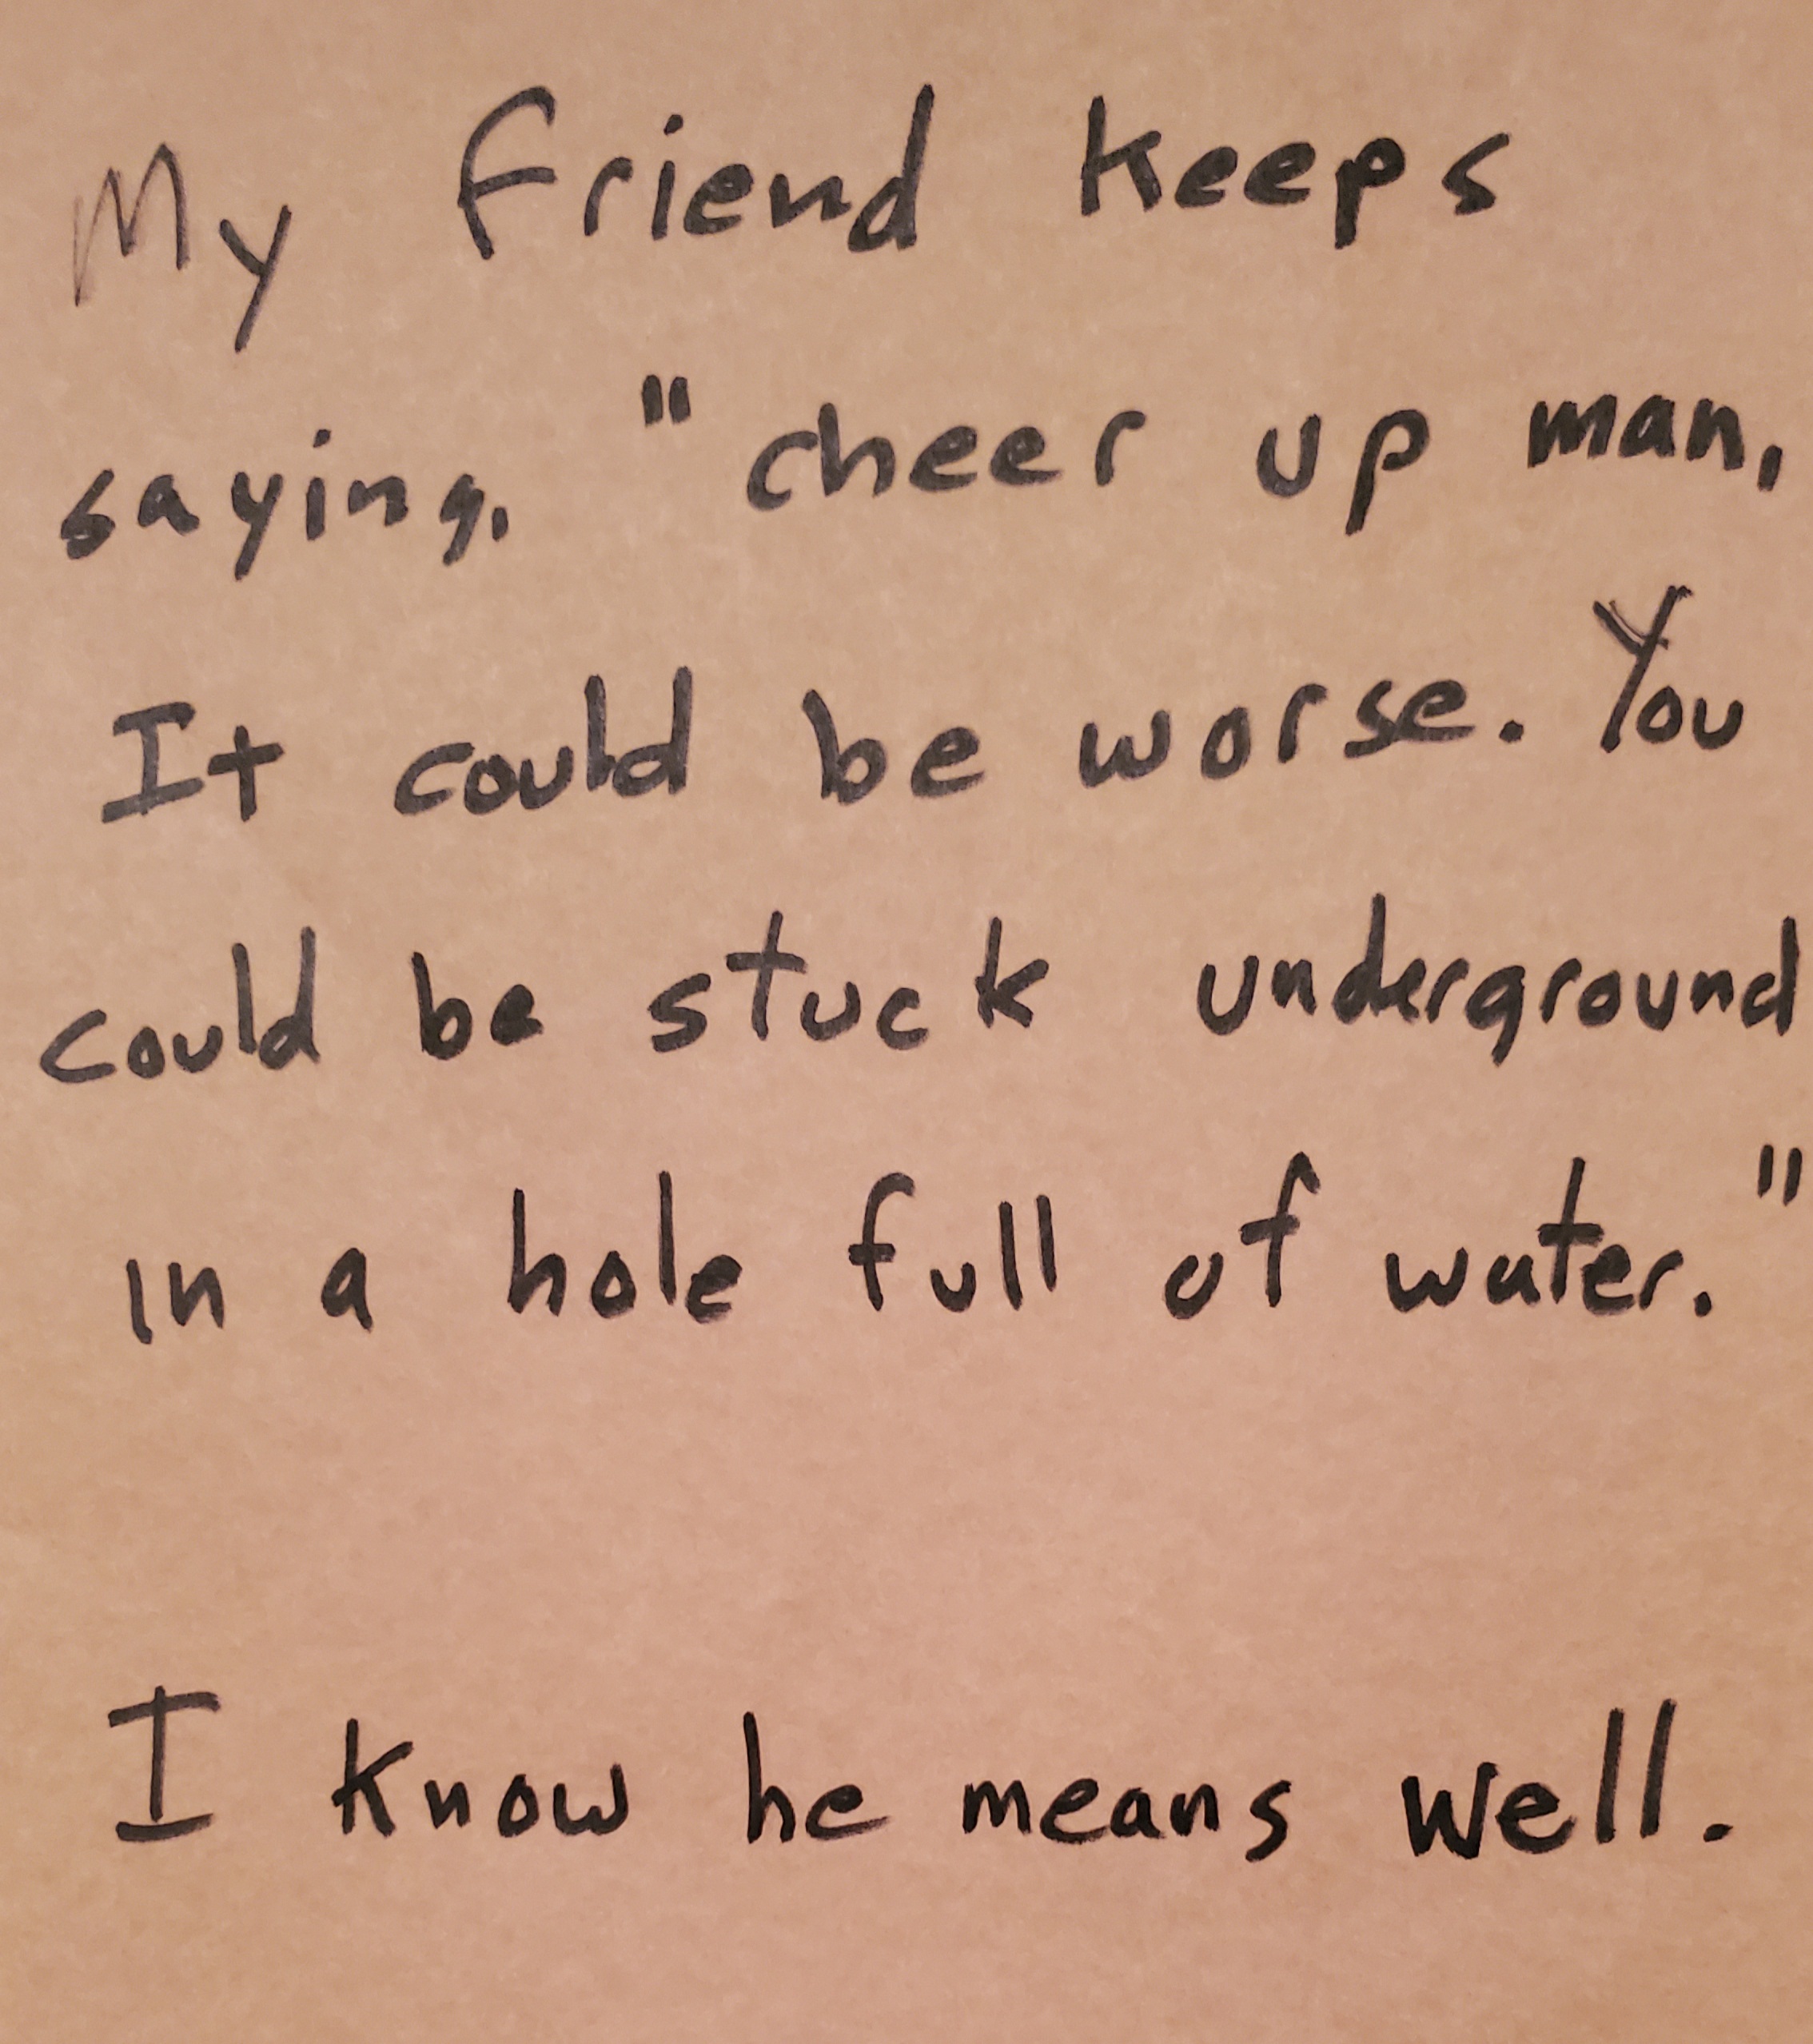 My friend keeps
saying, "cheer up man,
It could be worse. You
could be stuck underground
in a hole full of water."
I know he means well.